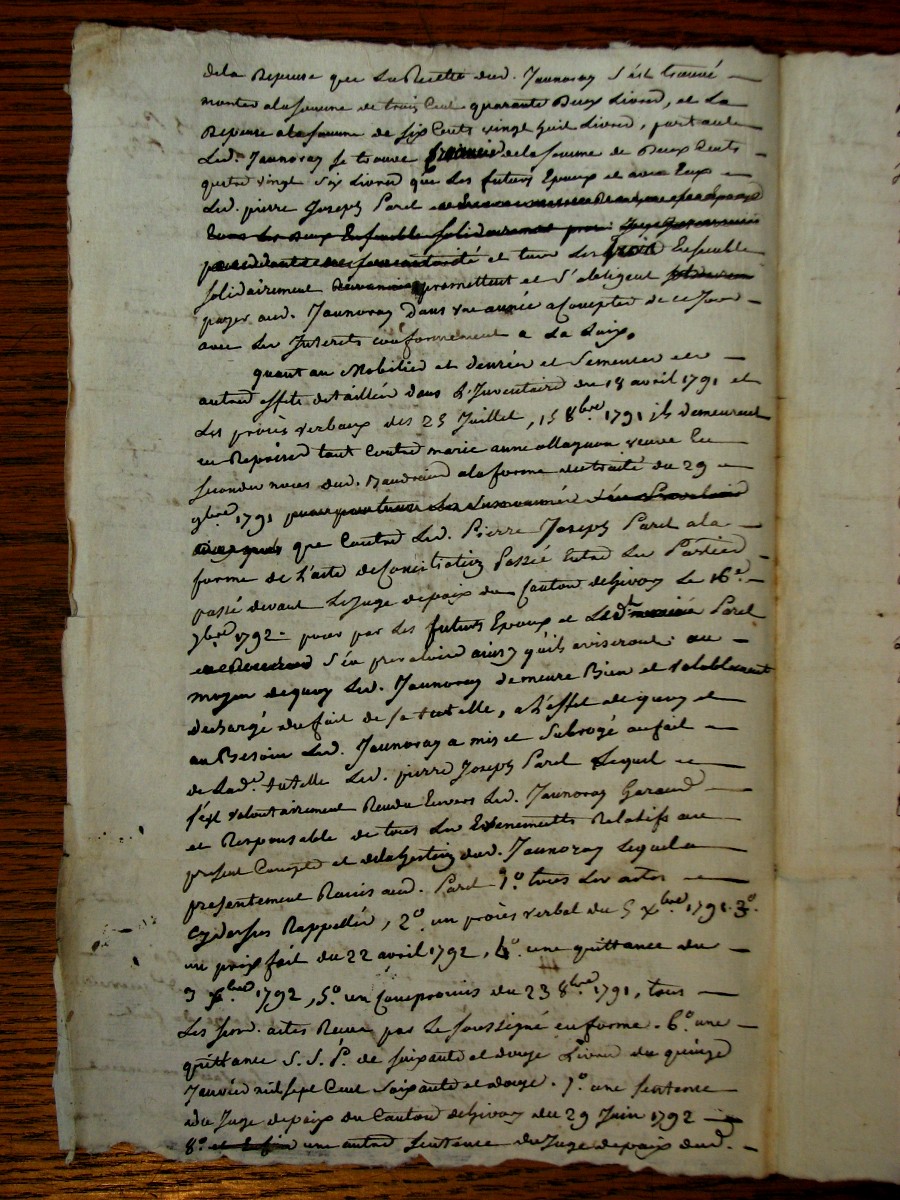 de la Depense que La Recette dud. Jaunoray s'est trouvé
monter a la somme de trois Cent quarante Deux Livres, et La
Depense a la somme de six Cents vingt huit Livres, partant
Led. Jaunoray se trouve de la somme de Deux Cents
quatre vingt six Livres que Les futurs Epoux et avec Eux
Led. pierre Joseph Parel
tous Les deux Ensemble solidairement pour
et tous Les trois Ensemble
solidairement promettent et s'obligent
payer aud. Jaunoray Dans une année a Compter de ce Jour
avec Les Interets conformement a La Loix.
quant au Mobilier et denrées et Semences et
autres effets detaillés dans L'Inventaire du 18 avril 1791 et
Les procès verbaux des 25 Juillet, 15 8bre 1791 ils demeurent
en Reprises tant Contre marie anne allagnon veuve En
secondes noces dud. a la forme du traité du 29
9bre 1791
que Contre Led. Pierre Joseph Parel a la
forme de L'acte de Conciliation Passé Entre Les Parties
passé devant Le Juge de paix du Canton de Givors Le 16e
9bre 1792 - pour par Les futurs Epoux et Parel
s'en prevaloir ainsy qu'ils aviseront au
moyen de quoy Led. Jaunoray demeure Bien et valablement
dechargé du fait de sa tutelle, a L'effet de quoy et
au Besoin Led. Jaunoray a mis et subrogé au fait
de Lad.e tutelle Led. pierre Joseph Parel Lequel
s'est volontairement Rendu Envers Led. Jaunoray Garand
et Responsable de tous Les Evenements Relatifs au
present Compte et de la Gestion dud. Jaunoray Lequel a
presentement Remis aud. Parel 1º. tous Les actes
Cydessus Rappellés, 2º. un procès verbal du 5 xbre 1791. 3º.
un prix fait du 22 avril 1792, 4º. une quittance du
3 xbre 1792, 5º. un Compromis du 23 8bre 1791, tous
Les susd. actes Recus par Le soussigné en forme. 6º. une
quittance S. S. P. de soixante et douze Livres du quinze
Janvier mil sept Cent soixante et douze. 7º. une sentence
du Juge de paix du Canton de Givors du 29 Juin 1792
8º. et Enfin une autre sentence du Juge de paix dud.